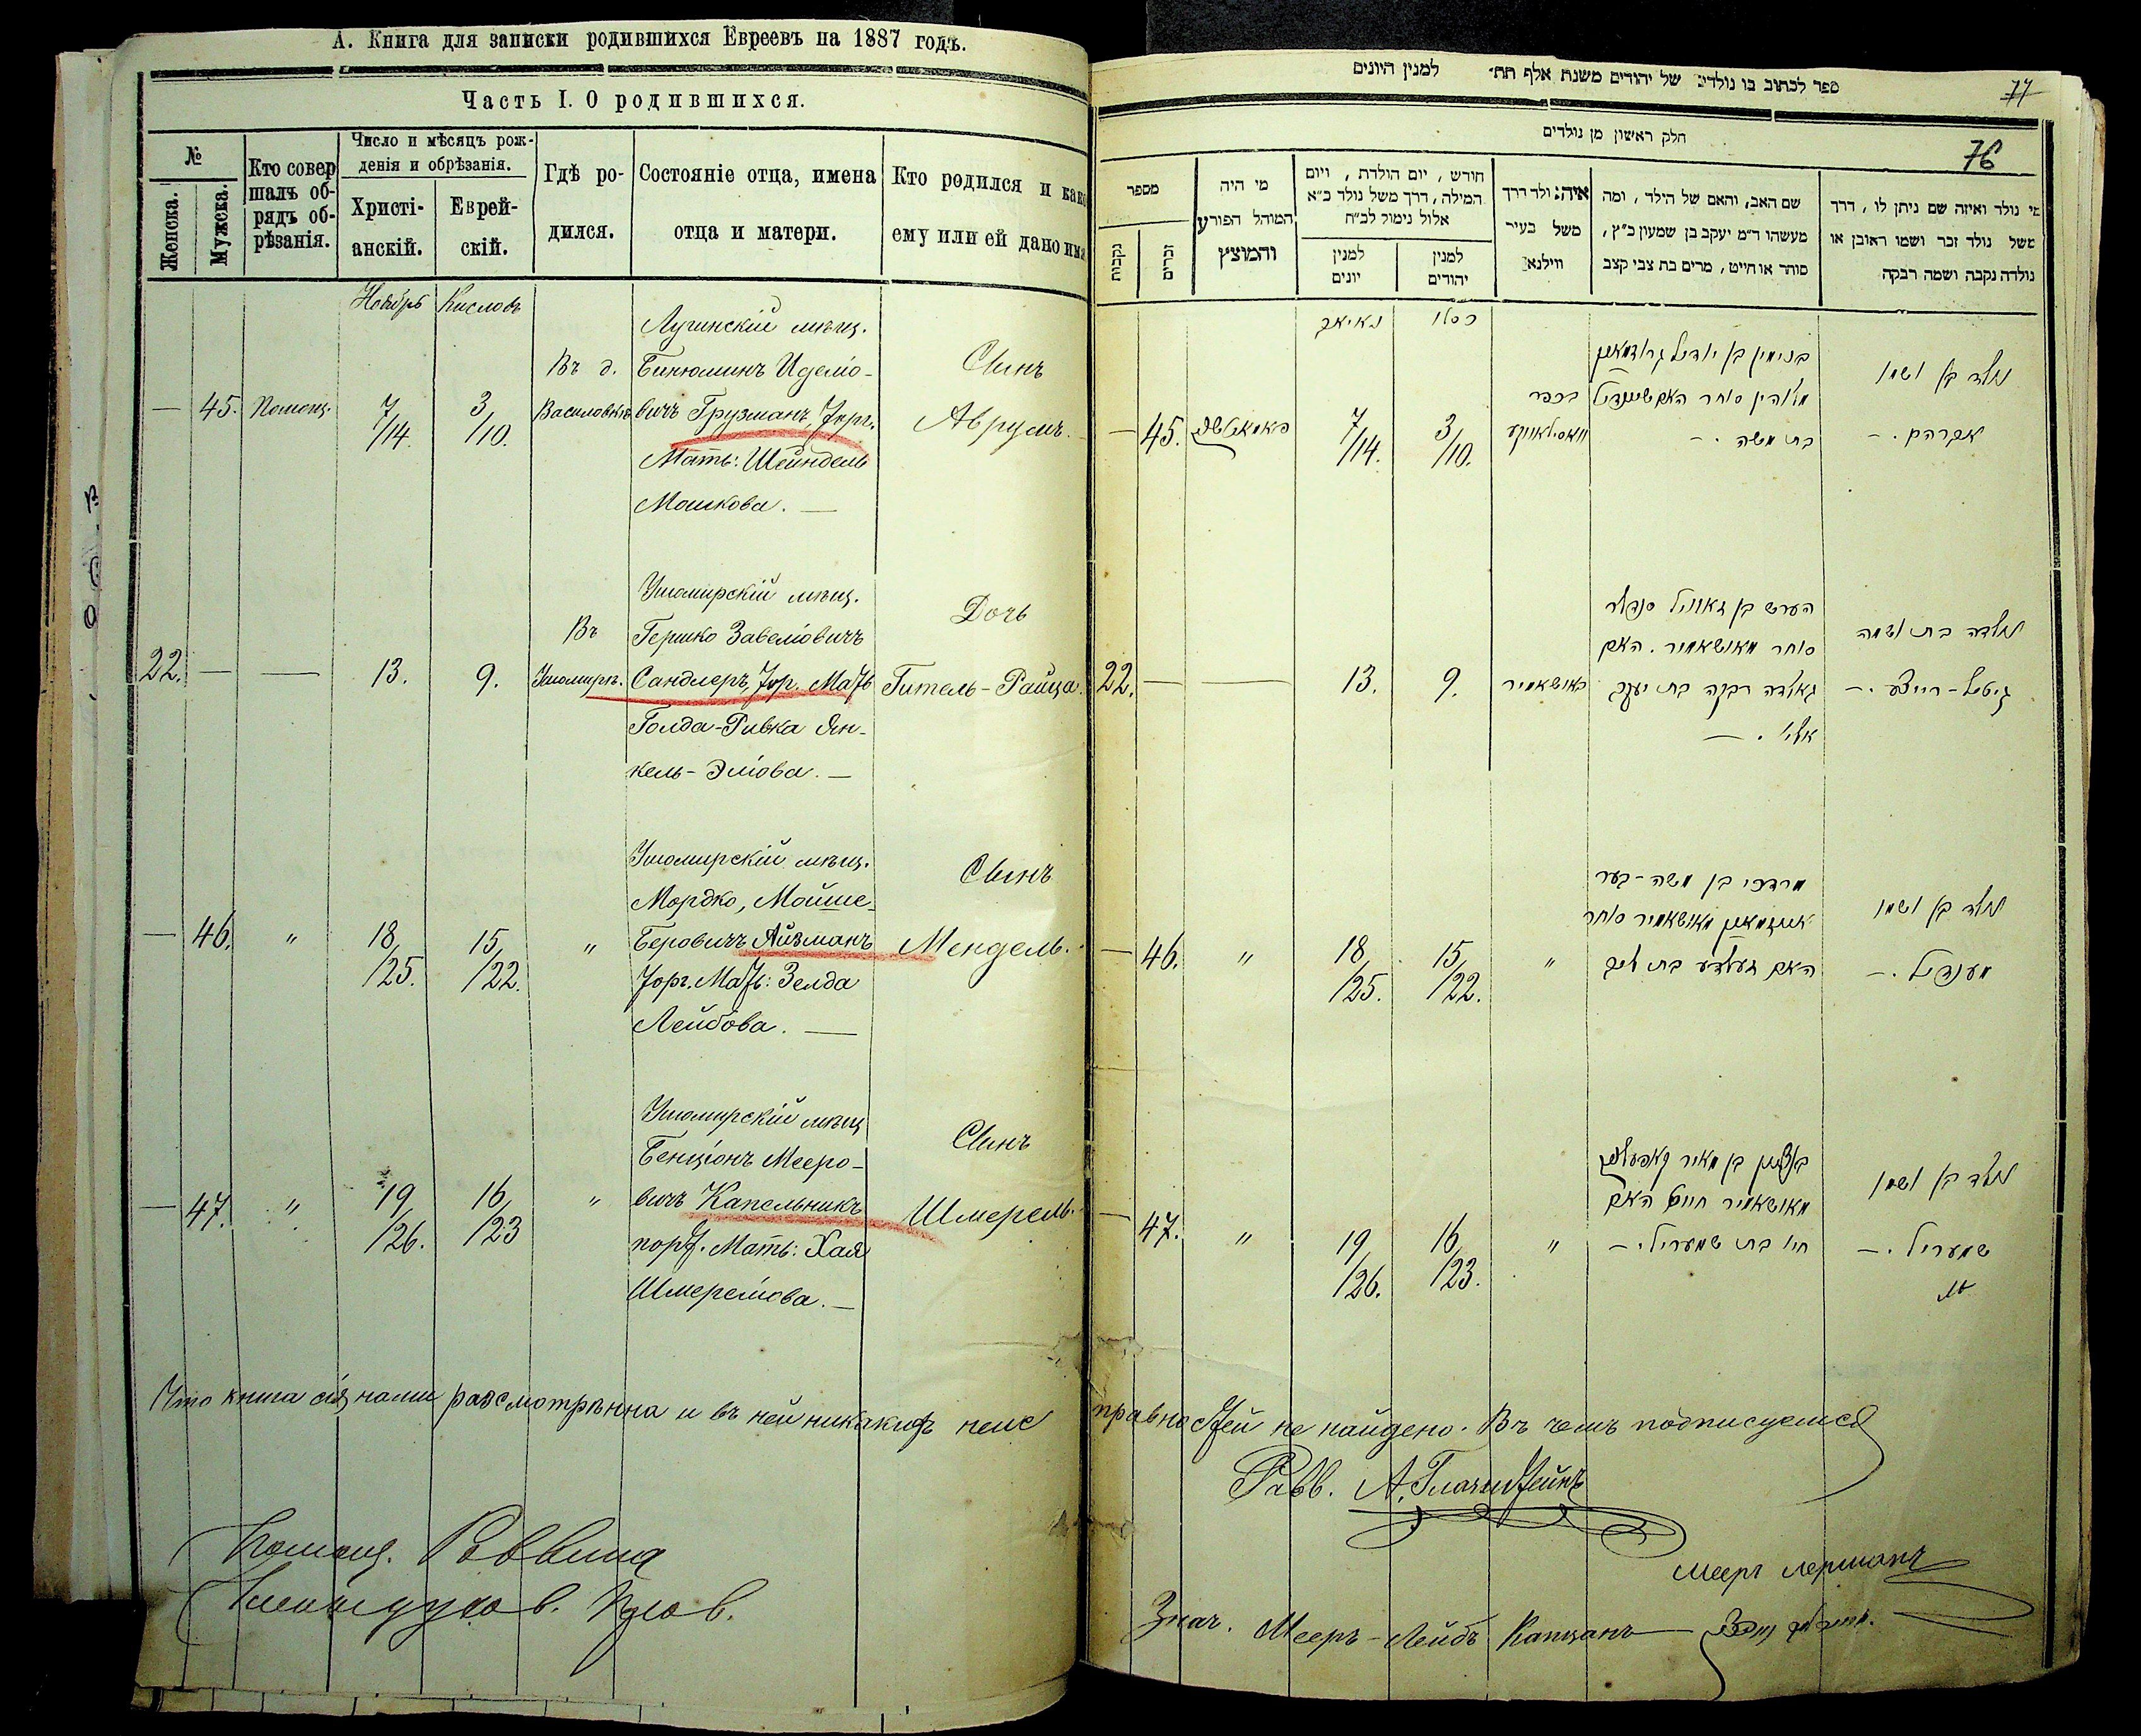 А. Книга для записки родившихся Евреевъ на 1887 годъ.
Часть I. О родившихся.
№
Женска.
Мужска.
Кто совер
шалъ об-
рядъ об-
рѣзанія.
Число и мѣсяцъ рож-
денія и обрѣзанія.
Христі-
анскій.
Еврей-
скій.
Гдѣ ро-
дился.
Состояніе отца, имена
отца и матери.
Кто родился и како
ему или ей дано имя
Ноябрь Кислевъ
— 45. Помощ. 7/14. 3/10.
Въ д.
Василовкѣ
Лугинскій мѣщ.
Бинюминъ Иделіо-
вичъ Грузманъ, Торг.
Мать: Шейндель
Мошкова. —
Сынъ
Аврумъ.
22. — — 13. 9.
Въ
Ушомирѣ.
Ушомирскій мѣщ.
Гершко Завеліовичъ
Сандлеръ, Тор. Мать
Голда-Ривка Ян-
кель-Эліова. —
Дочь
Гитель-Райца.
— 46. " 18/25. 15/22. "
Ушомирскій мѣщ.
Мордко, Мойше-
Беровичъ Айзманъ
Торг. Мать: Зелда
Лейбова. —
Сынъ
Мендель.
— 47. " 19/26. 16/23 "
Ушомирскій мѣщ
Бенціонъ Мееро-
вичъ Капельникъ
порт. Мать: Хая
Шмереліова. —
Сынъ
Шмерель.
Что книга сія нами разсмотрѣнна и въ ней никакихъ неис
Помощ. Раввина
ספר לכתוב בו נולדים של יהודים משנת אלף תת׳ למנין היונים
77
76
חלק ראשון מן נולדים
מי נולד ואיזה שם ניתן לו, דרך
משל נולד זכר ושמו ראובן או
נולדה נקבה ושמה רבקה
שם האב, והאם של הילד, ומה
מעשהו ד״מ יעקב בן שמעון כ״ץ,
סוחר או חייט, מרים בת צבי קצב
איה נולד דרך
משל בעיר
ווילנא
חודש, יום הולדת, ויום
המילה, דרך משל נולד כ״א
אלול נימול לכ״ח
למנין
יהודים
למנין
יונים
מי היה
המוהל הפורע
והמוצץ
מספר
זכרים
נקבות
כסלו
— 45. 7/14. 3/10.
בכפר
בנימין בן יודיל גרוזמאן
בת משה . —
נולד בן ושמו
אברהם . —
22. — — 13. 9.
באושאמיר
הערש בן זאוויל סנדלר
סוחר מאושאמיר . האם
גאלדה רבקה בת יעקב
אליי . —
נולדה בת ושמה
גיטל-רייצע . —
— 46. " 18/25. 15/22. "
מרדכי בן משה-בער
אייזמאן מאושאמיר סוחר
האם זעלדע בת ליב
נולד בן ושמו
מענדיל . —
— 47. " 19/26. 16/23. "
בנציון בן מאיר קאפעלניק
מאושאמיר חייט האם
חיי בת שמעריל . —
נולד בן ושמו
שמעריל . —
правностей не найдено. Въ чемъ подписуемся
Равв. А. Глазштейнъ
Мееръ Лерманъ
Знач. Мееръ-Лейбъ Капцанъ